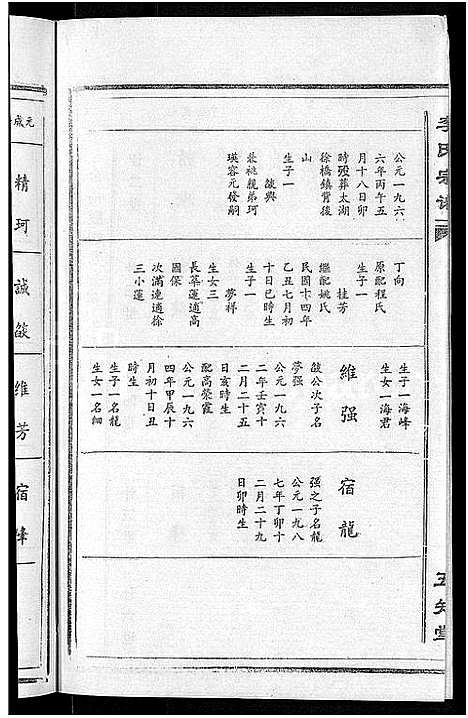 李氏宗谱
五知堂
公元一九六
六年丙午五
月十八日卯
時殁葬太湖
徐橋鎮背後
山
生子一
燄興
兼祧胞弟珂
瑛容元發嗣
丁向
原配程氏
生子一
桂芳
繼配姚氏
民國十四年
乙丑七月初
十日巳時生
生子一
夢祥
生女三
長藥蓮適高
國保
次滿連適徐
三小蓮
生子一海峰
生女一海君
維强
燄公次子名
夢强
公元一九六
二年壬寅十
二月二十五
日亥時生
配高榮霞
公元一九六
四年甲辰十
月初十日丑
時生
生子一名龍
生女一名細
宿龍
强之子名龍
公元一九八
七年丁卯十
二月二十九
日卯時生
元成
精珂
誠燄
維芳
宿峰